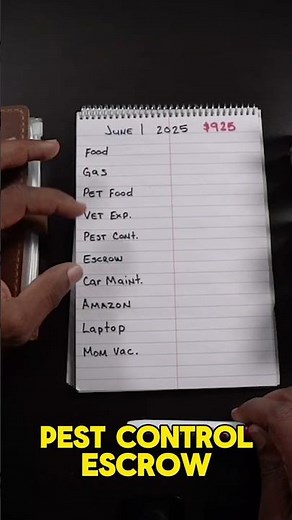 JUNE 1 2025 $925
FOOD
GAS
PET FOOD
VET EXP.
PEST CONT.
ESCROW
CAR MAINT.
AMAZON
LAPTOP
MOM VAC.
PEST CONTROL
ESCROW